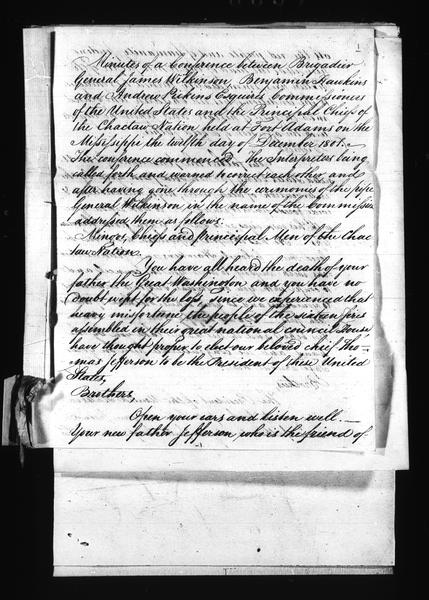 1
Minutes of a Conference between Brigadier
General James Wilkinson, Benjamin Hawkins
and Andrew Pickens Esquires Commissioners
of the United States and the Principal Chiefs of
the Chactaw Nation held at Fort Adams on the
Mississippi the twelfth day of December 1801.
The conference commenced. The Interpreters being
called forth and warned to correct each other, and
after having gone through the ceremonies of the pipe
General Wilkinson in the name of the Commission
addressed them as follows.
Mingos, Chiefs and principal Men of the Chac
taw Nation
You have all heard the death of your
father the Great Washington and you have no
doubt wept for the loss, since we experienced that
heavy misfortune the people of the sixteen fires
assembled in their great national council House
have thought proper to elect our beloved chief Tho-
mas Jefferson to be the President of the United
States,
Brothers
Open your ears and listen well. —
Your new father Jefferson, who is the friend of